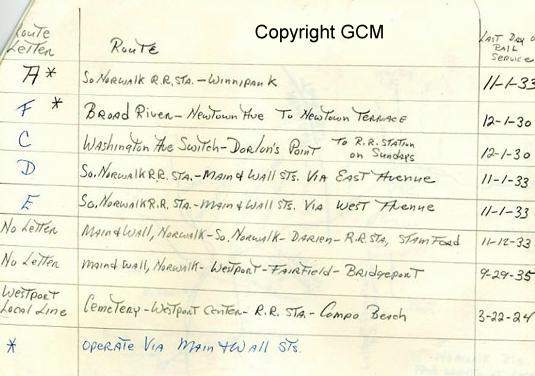 Copyright GCM
Route Letter Route Last Day of Rail Service
A * So. Norwalk R.R. Sta. - Winnipauk 11-1-33
F * Broad River - Newtown Ave To Newtown Terrace 12-1-30
C Washington Ave Switch - Dorlon's Point To R.R. Station on Sundays 12-1-30
D So. Norwalk R.R. Sta. - Main & Wall Sts. Via East Avenue 11-1-33
E So. Norwalk R.R. Sta. - Main & Wall Sts. Via West Avenue 11-1-33
No Letter Main & Wall, Norwalk - So. Norwalk - Darien - R.R. Sta, Stamford 11-12-33
No Letter Main & Wall, Norwalk - Westport - Fairfield - Bridgeport 9-29-35
Westport Local Line Cemetery - Westport Center - R.R. Sta. - Compo Beach 3-22-24
* Operate Via Main & Wall Sts.